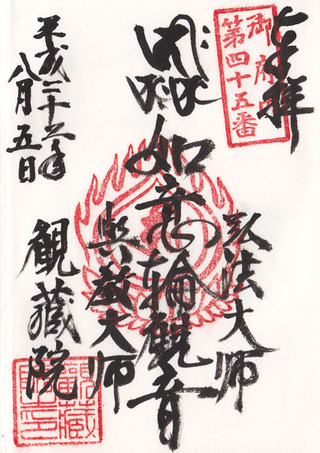 奉拝
御府内
第四十五番
弘法大師
如意輪觀音
興教大師
觀蔵院
平成二十三年
八月五日